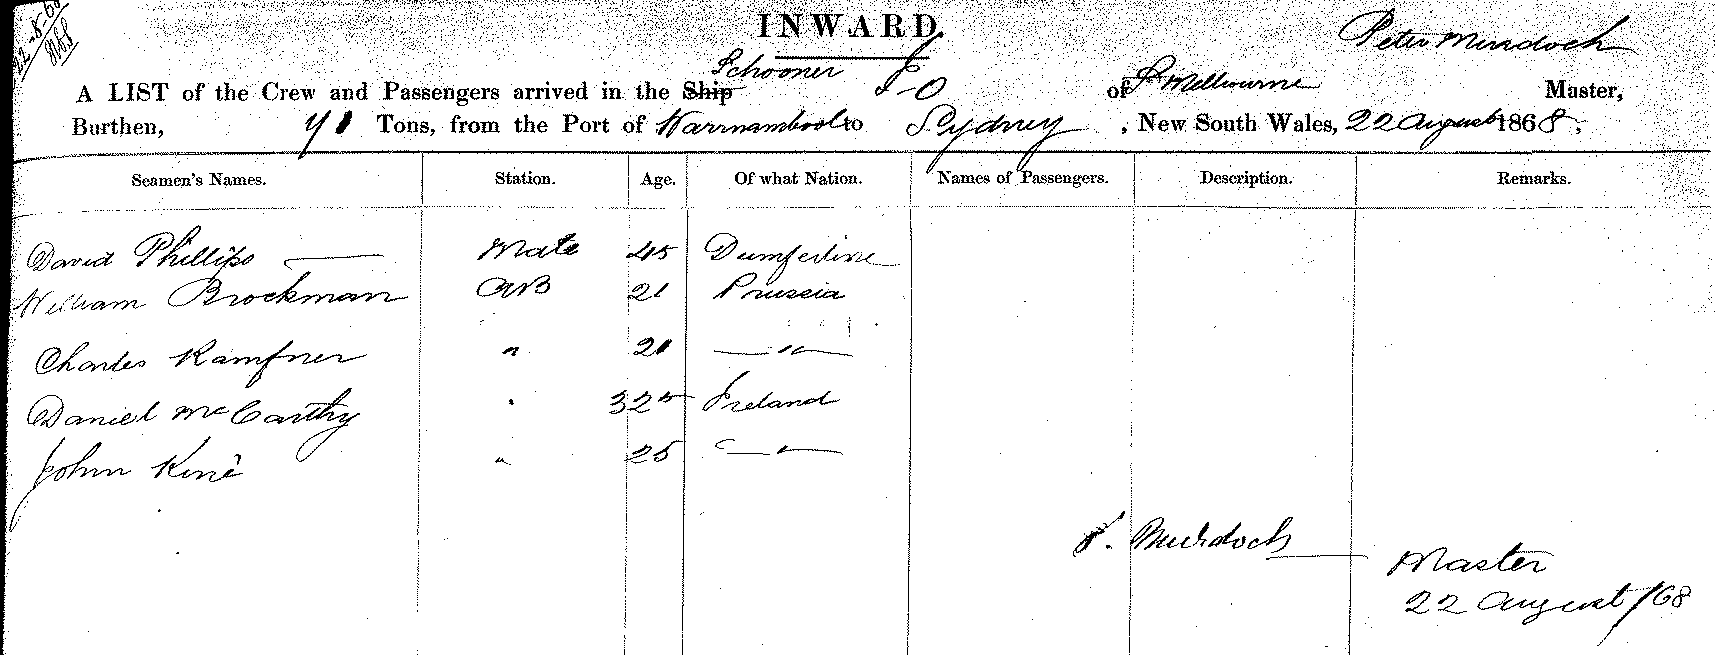 22-8-68
INWARD.
Schooner Peter Murdoch
A LIST of the Crew and Passengers arrived in the Ship of Melbourne Master,
Burthen, Tons, from the Port of Warrnambool to Sydney, New South Wales, 22 August 1868.
Seamen's Names. Station. Age. Of what Nation. Names of Passengers. Description. Remarks.
David Phillips — Mate 45 Dumferline
William Brockman AB 21 Prussia
Charles Kamfner " 21 — " —
Daniel McCarthy " Ireland
John " 25 — " —
P. Murdoch — Master
22 August /68